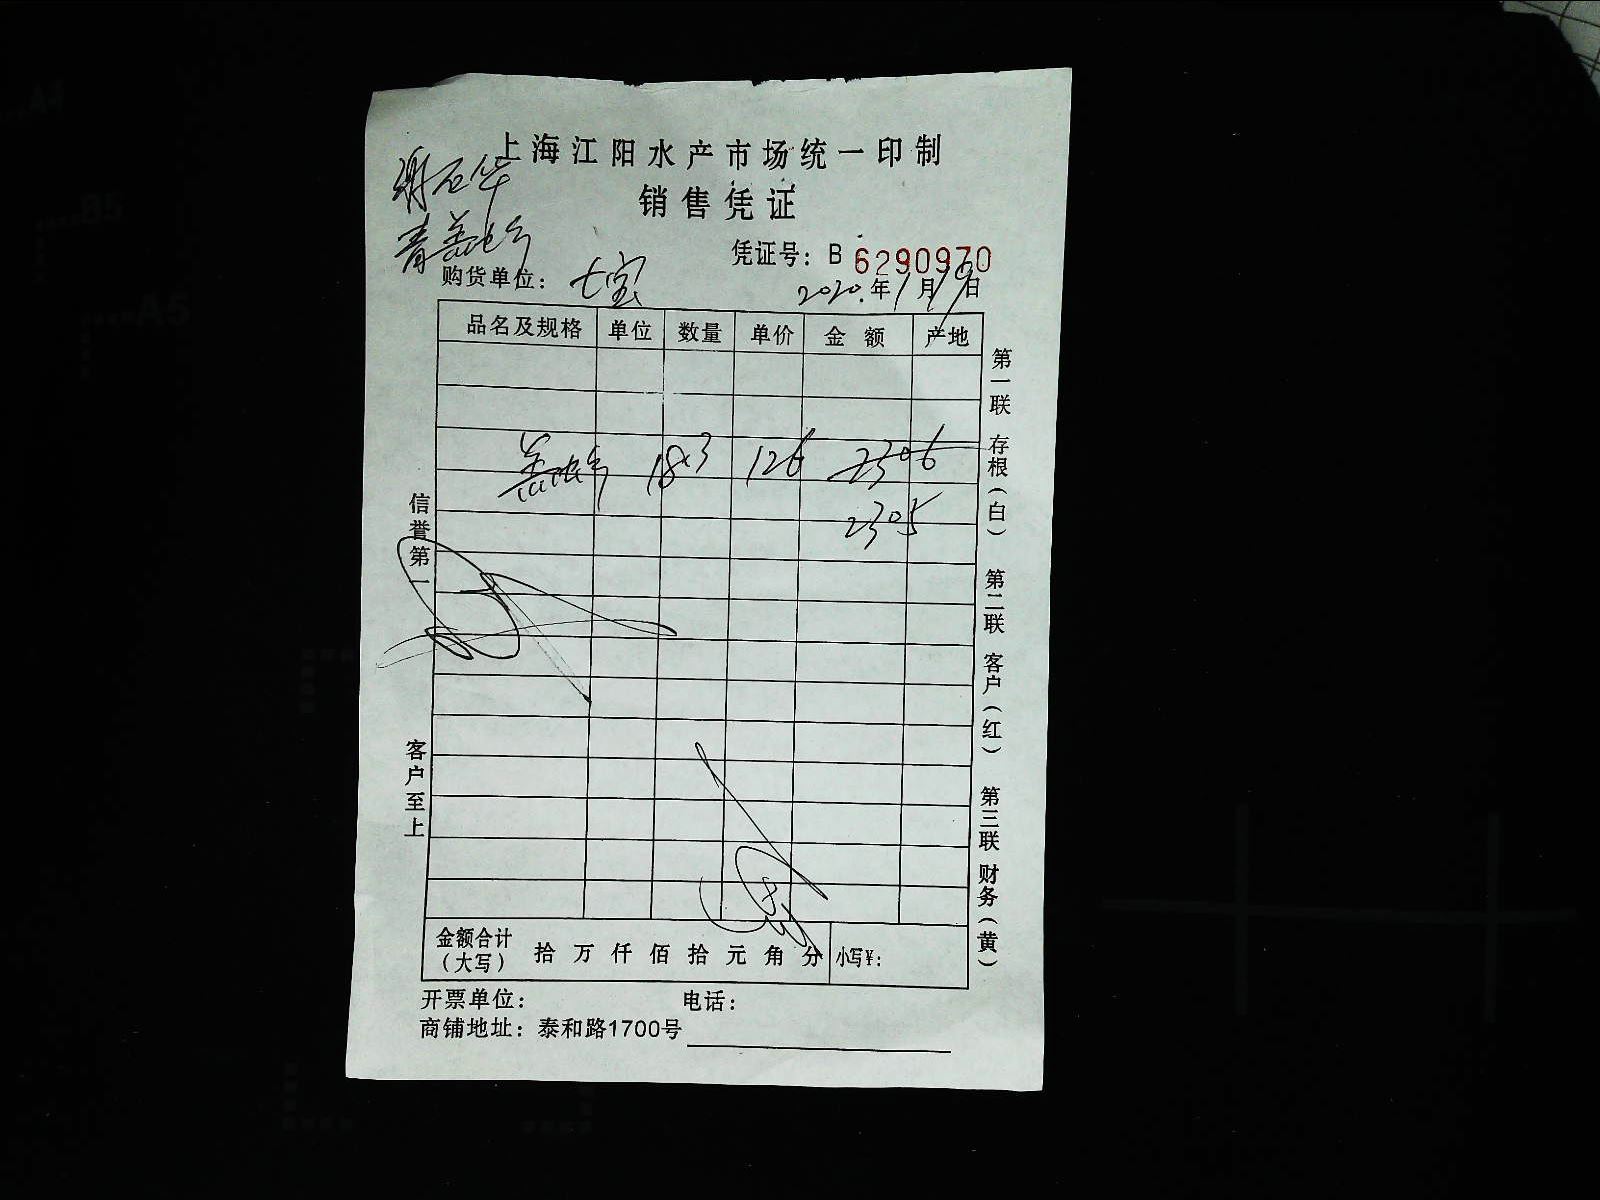 上海江阳水产市场统一印制
销售凭证
凭证号：B 6290970
购货单位：七宝
2020.年1月19日
品名及规格 单位 数量 单价 金额 产地
18.3 126 2306
2305
信誉第一
客户至上
第一联 存根（白） 第二联 客户（红） 第三联 财务（黄）
金额合计（大写） 拾 万 仟 佰 拾 元 角 分 小写¥：
开票单位： 电话：
商铺地址：泰和路1700号